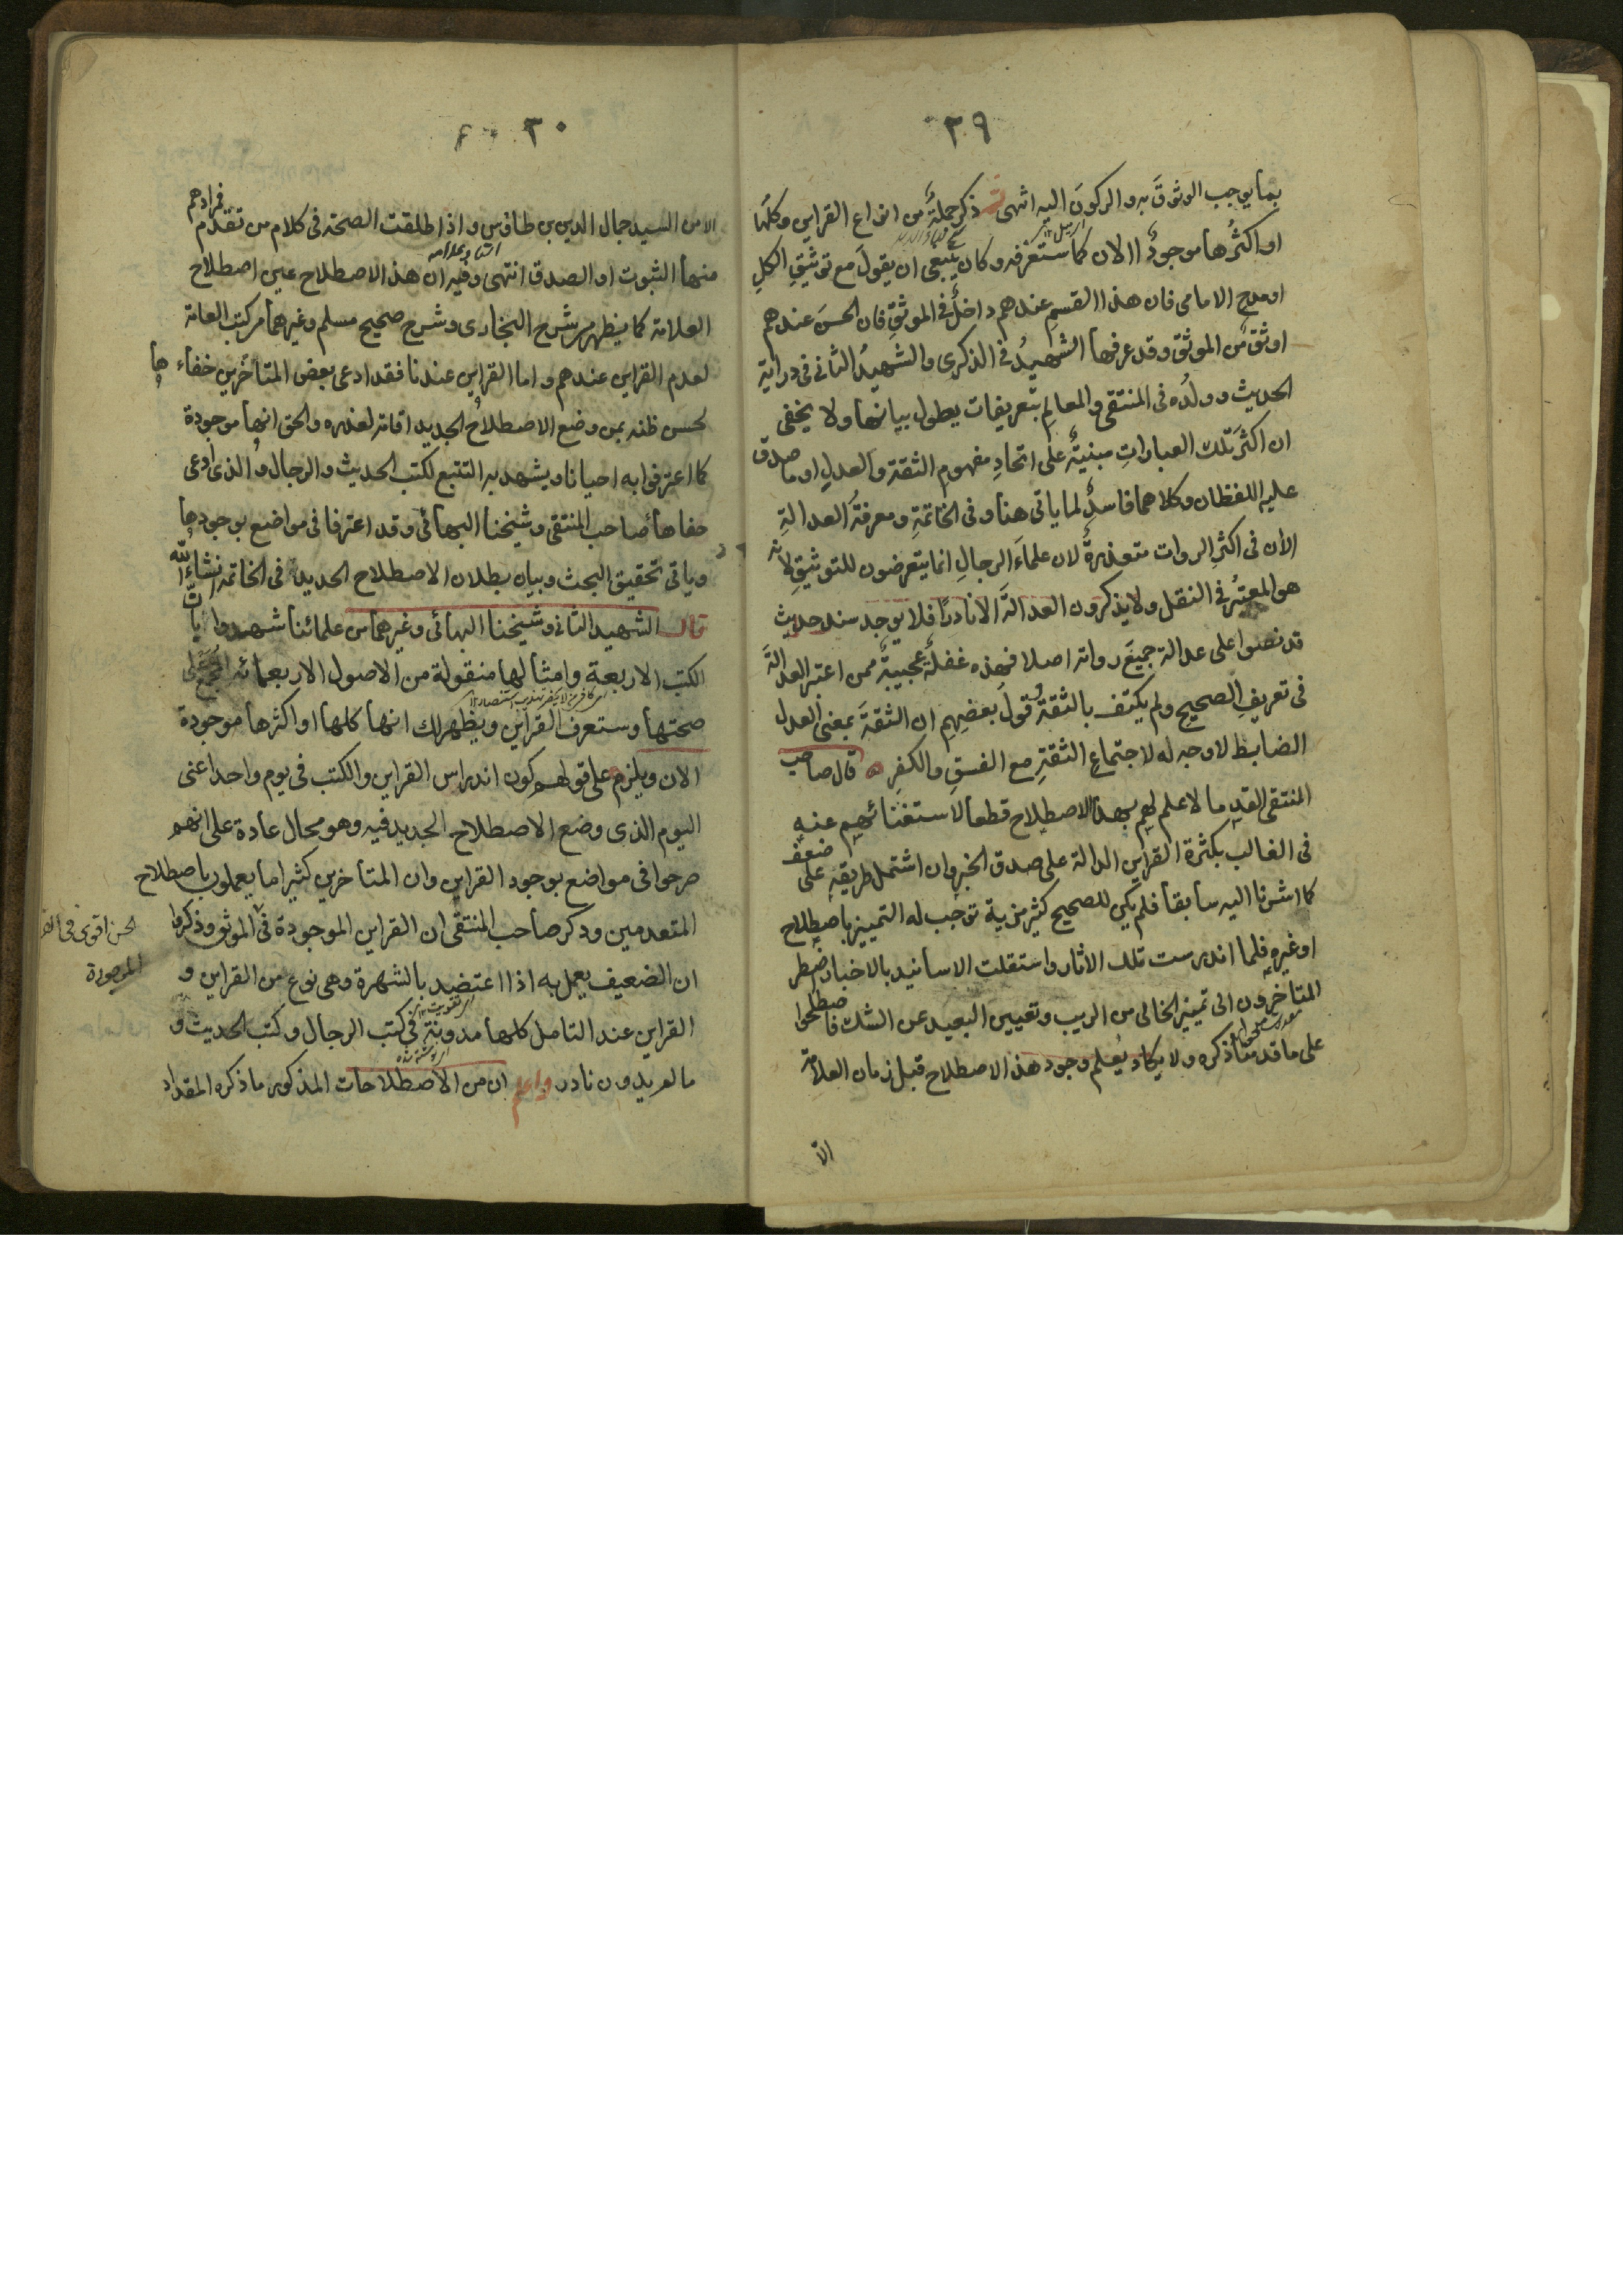 ٣٩
بما يوجب الوثوقَ به والركونَ اليه انتهى ذكر جملةً من انواع القراين وكلّها
او اكثرُها موجودٌ االان كما ستعرفه وكان ينبغى ان يقولَ مع توثيقِ الكلِ
او مدح الامامى فان هذا القسم عندهم داخلٌ فى الموثقِ فان الحسنَ عندهم
اوثق من الموثق وقد عرفها الشهيدُ فى الذكرى والشهيدُ الثانى فى دراية
الحديث وولدُه فى المنتقى والمعالمِ بتعريفات يطول بيانها ولا يخفى
ان اكثرَ تلك العباراتِ مبنيةٌ على اتحادِ مفهوم الثقة والعدلِ او ما صدق
عليه اللفظان وكلاهما فاسدٌ لما ياتى هنا وفى الخاتمةِ ومعرفةُ العدالةِ
الان فى اكثرِ الروات متعذرةٌ لان علماءَ الرجالِ انما يتعرضون للتوثيقِ لانه
هو المعتبرُ فى النقل ولا يذكرون العدالةَ الا نادرًا فلا يوجد سند حديث
قد نصوا على عدالة جميعَ رواته اصلا فهذه غفلةٌ عجيبةٌ ممن اعتبر العدالةَ
فى تعريفِ الصحيح ولم يكتف بالثقةِ وقولُ بعضِهم ان الثقةَ بمعنى العدل
الضابط لا وجه له لاجتماع الثقةِ مع الفسقِ والكفرِ قال صاحب
المنتقى القدما لا علم لهم بهذا الاصطلاح قطعا لاستغنائهم عنه
فى الغالب بكثرة القراين الدالة على صدق الخبر وان اشتمل طريقه على ضعف
كما اشرنا اليه سابقا فلم يكن للصحيح كثير مزية توجب له التمييز باصطلاح
او غيره فلما اندرست تلك الاثار واستقلت الاسانيد بالاخبار اضطر
المتاخرون الى تمييز الخالى من الريب وتعيين البعيد عن الشك فاصطلحوا
على ما قدمنا ذكره ولا يكاد يُعلم وجود هذ الاصطلاح قبل زمان العلامة
الا
٣٠
الا من السيد جمال الدين بن طاوس واذا اطلقت الصحة فى كلام من تقدم فمرادهم
منها الثبوت او الصدق انتهى وفيه ان هذ الاصطلاح عين اصطلاح
العلامة كما يظهر من شرح البخارى وشرح صحيح مسلم وغيرهما من كتب العامة
لعدم القراين عندهم واما القراين عندنا فقد ادعى بعض المتأخرين خفاءها
لحسن ظنه بمن وضع الاصطلاح الجديد اقامة لعذره والحق انها موجودة
كما اعترفوا به احيانا ويشهد به التتبع لكتب الحديث والرجال والذى ادعى
خفاها صاحب المنتقى وشيخنا البهائى وقد اعترفا فى مواضع بوجودها
وياتى تحقيق البحث وبيان بطلان الاصطلاح الجديد فى الخاتمة انشاء الله
قال الشهيد الثانى وشيخنا البهائى وغيرهما من علمائنا شهيدوا بان
الكتب الاربعة وامثالها منقولة من الاصول الاربعمائة المجمع على
صحتها وستعرف القراين ويظهر لك انها كلها او اكثرها موجودة
الان ويلزم على قولهم كون اندراس القراين والكتب فى يوم واحد اعنى
اليوم الذى وضع الاصطلاح الجديد فيه وهو محال عادة على انهم
صرحوا فى مواضع بوجود القراين وان المتاخرين كثيرا ما يعملون باصطلاح
المتقدمين وذكر صاحب المنتقى ان القراين الموجودة فى الموثق وذكروا
ان الضعيف يعمل به اذا اعتضد بالشهرة وهى نوع من القراين و
القراين عند التامل كلها مدونة فى كتب الرجال وكتب الحديث و
ما لم يدون نادر واعلم ان من الاصطلاحات المذكور ما ذكره المقداد
الحسن اقوى فى
الموجودة